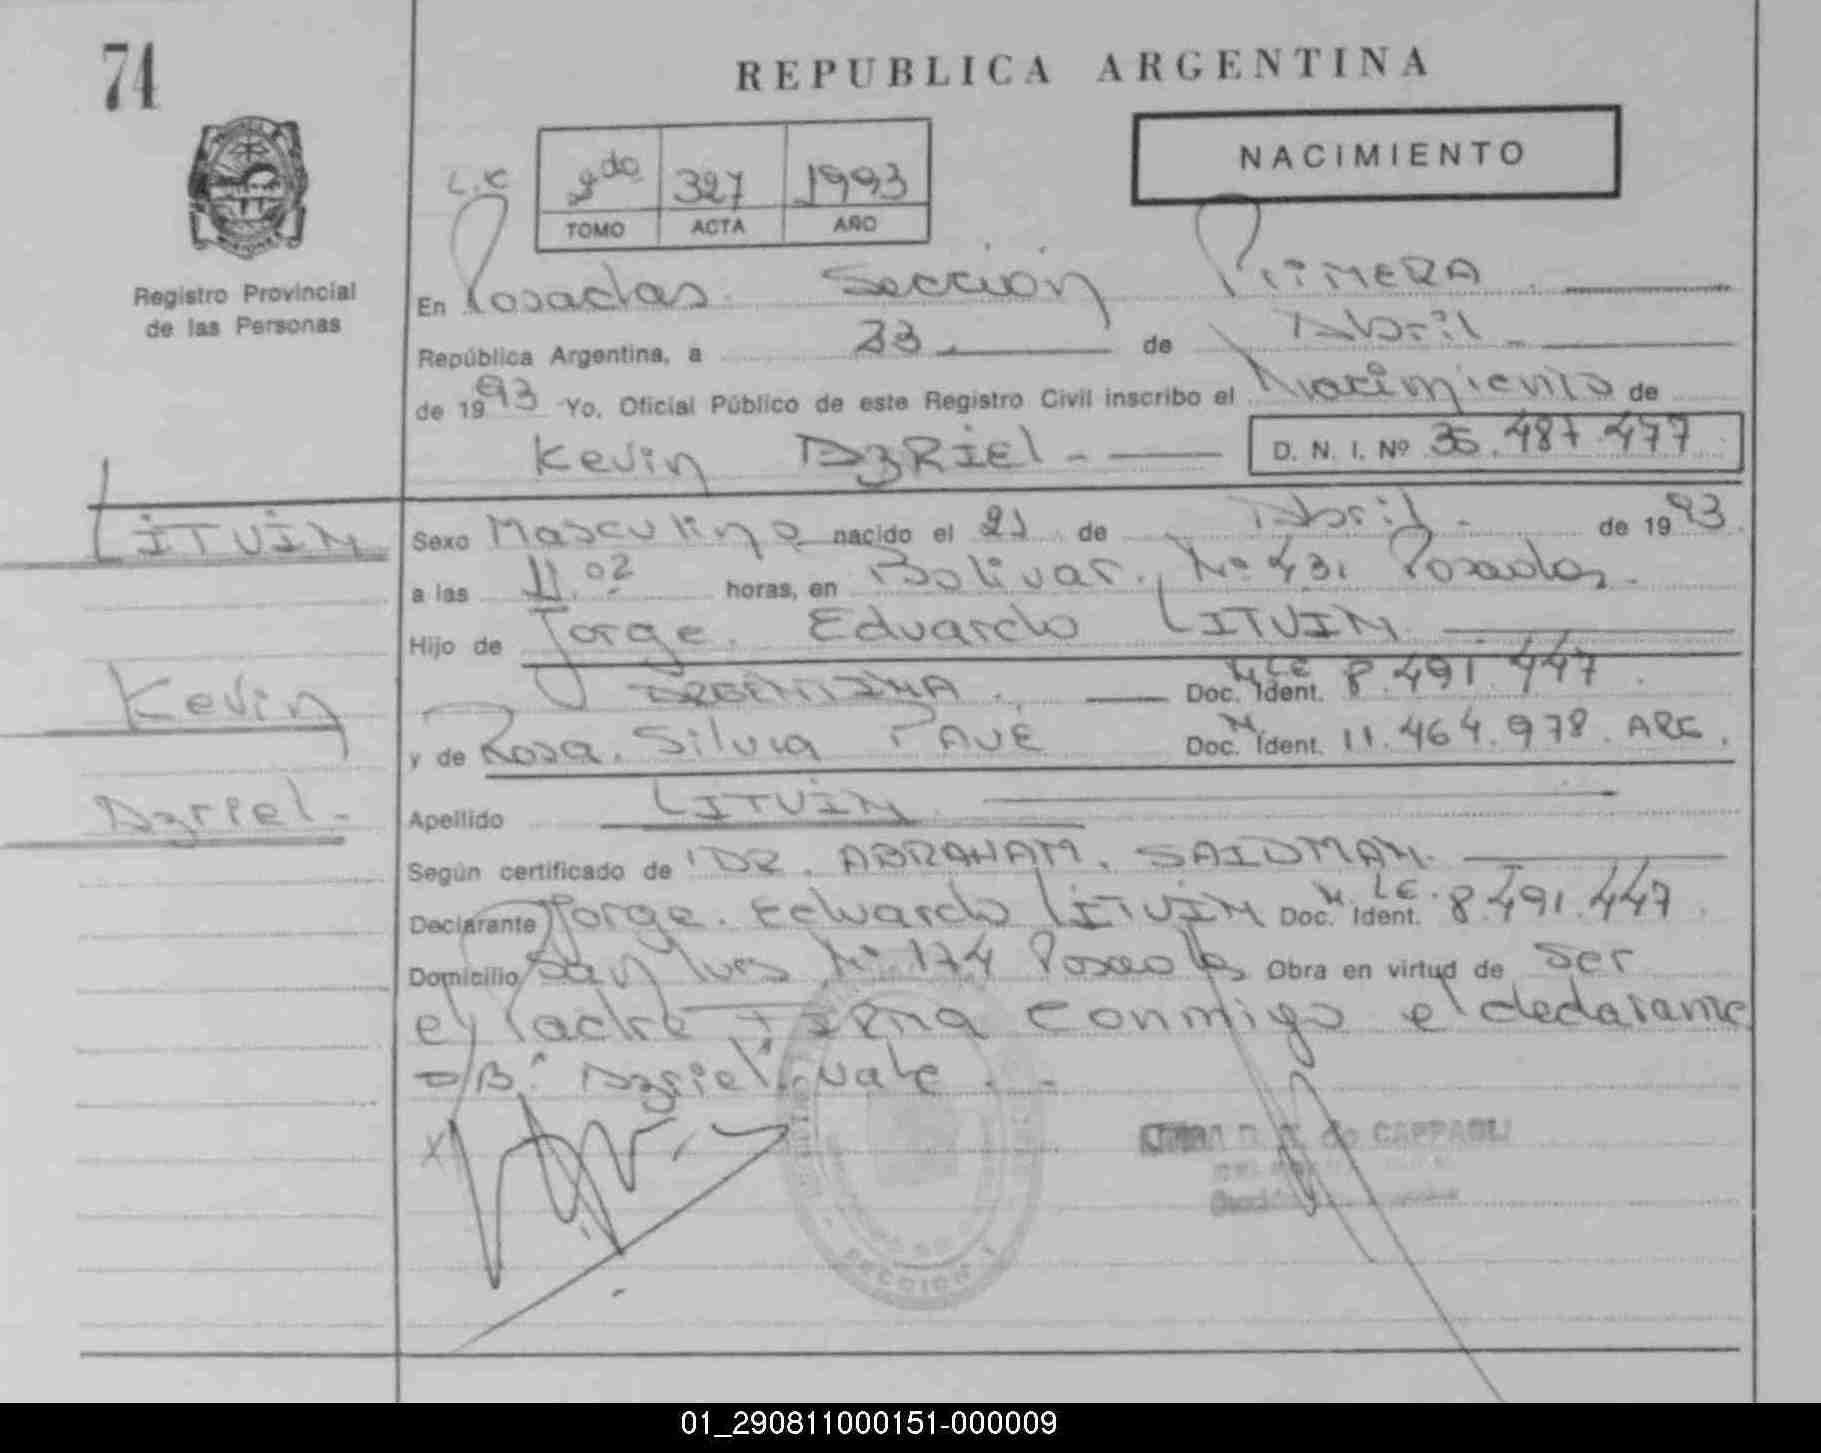 74
REPUBLICA ARGENTINA
NACIMIENTO
L.C 2do 327 1993
TOMO ACTA AÑO
Registro Provincial
de las Personas
En Posadas Sección PriMERA
República Argentina, a 23 de Abril
de 1993 Yo, Oficial Público de este Registro Civil inscribo el Nacimiento de
Kevin AzRiEl - D. N. I. Nº 35.487.477
LiTViN
Sexo Masculino nacido el 21 de Abril - de 1993
a las 11.02 horas, en Bolivar. Nº 431 Posadas.
Hijo de Jorge. Eduardo LITVIN
Kevin
ARGENTINA. Doc. Ident. M LE 8.491.447
y de Rosa. Silvia PAVE Doc. Ident. M 11.464.978. ARG.
Azriel -
Apellido LITVIN
Según certificado de DR. ABRAHAM. SAIDMAN.
Declarante Jorge. Eduardo LITVIN Doc. Ident. M. LE. 8.491.447
Domicilio San Nº 174 Posadas Obra en virtud de Ser
el Padre Firma conmigo el declarante
"Azriel" vale. -
X
de CAPPAGLI
SECCION 1
01_290811000151-000009